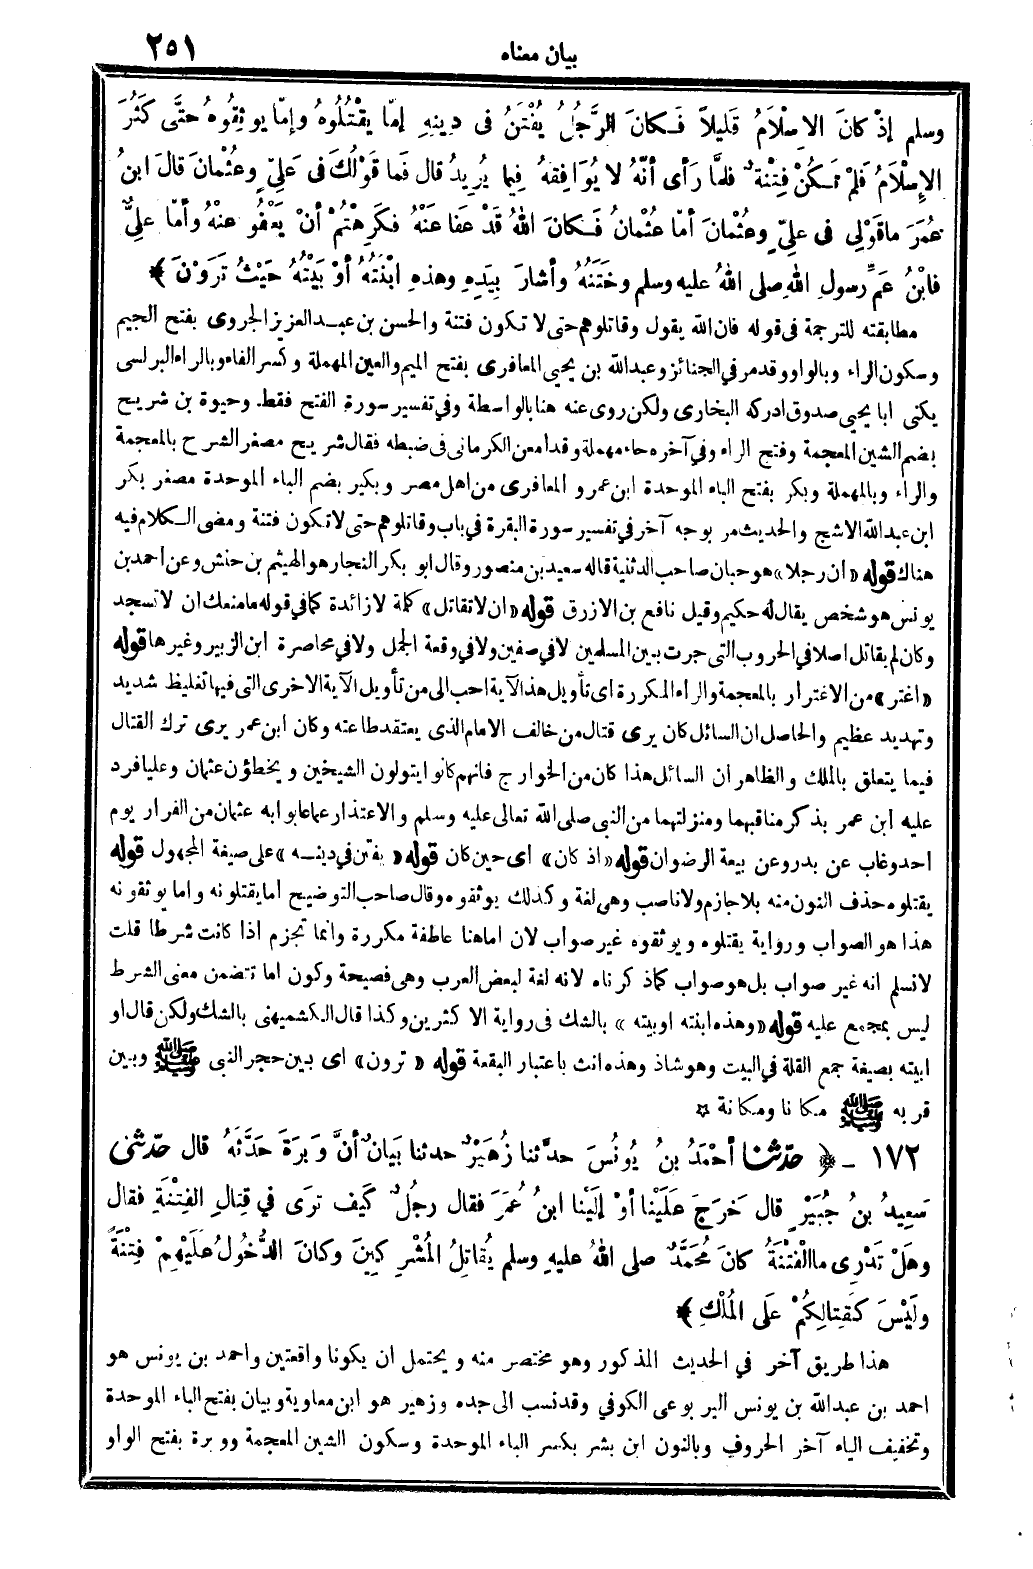 بيان معناه
٢٥١
وسلم إذْ كانَ الإِسْلاَمُ قَلِيلاً فَكانَ الرَّجُلُ يُفْتَنُ فى دِينِهِ إمّا يَقْتُلُوهُ وإمّا يوثِقُوهُ حتَّى كَثُرَ
الإِسْلاَمُ فَلَمْ تَكُنْ فِتْنَةٌ فلمَّا رَأى أنَّهُ لا يُوَافِقهُ فِيما يُرِيدُ قال فَما قَوْلُكَ فى عَلِيٍّ وعُثْمانَ قال ابنُ
عُمَرَ ماقَوْلِي فى عَلِيٍّ وعُثْمانَ أمّا عُثْمانُ فَكانَ اللهُ قَدْ عَفا عَنْهُ فكَرِهْتُمْ أنْ يَعْفُوَ عنْهُ وأمّا علِيٌّ
فابْنُ عَمِّ رسولِ اللهِ صلى اللهُ عليه وسلم وخَتَنُهُ وأشارَ بِيَدِهِ وهذهِ ابْنَتُهُ أوْ بَيْتُهُ حَيْثُ تَرَوْنَ ﴾
مطابقته للترجمة فى قوله فان الله يقول وقاتلوهم حتى لا تكون فتنة والحسن بن عبد العزيز الجروى بفتح الجيم
وسكون الراء وبالواو وقد مر في الجنائز وعبدالله بن يحيى المعافرى بفتح الميم والعين المهملة وكسر الفاء وبالراء البرلسى
يكنى ابا يحيى صدوق ادركه البخارى ولكن روى عنه هنا بالواسطة وفي تفسير سورة الفتح فقط. وحيوة بن شريح
بضم الشين المعجمة وفتح الراء وفي آخره حاء مهملة وقد امعن الكرمانى فى ضبطه فقال شريح مصغر الشرح بالمعجمة
والراء وبالمهملة وبكر بفتح الباء الموحدة ابن عمرو المعافرى من اهل مصر وبكير بضم الباء الموحدة مصغر بكر
ابن عبدالله الاشج والحديث مر بوجه آخر في تفسير سورة البقرة في باب وقاتلوهم حتى لا تكون فتنة ومضى الكلام فيه
هناك قوله «ان رجلا» هو حبان صاحب الدثنية قاله سعيد بن منصور وقال ابو بكر النجار هو الهيثم بن حنش وعن احمد بن
يونس هو شخص يقال له حكيم وقيل نافع بن الازرق قوله «ان لا تقاتل» كلمة لا زائدة كما فى قوله ما منعك ان لا تسجد
وكان لم يقاتل اصلا في الحروب التى جرت بين المسلمين لا في صفين ولا في وقعة الجمل ولا في محاصرة ابن الزبير وغيرها قوله
«اغتر» من الاغترار بالمعجمة والراء المكررة اى تأويل هذا الآية احب الى من تأويل الآية الاخرى التى فيها تغليظ شديد
وتهديد عظيم والحاصل ان السائل كان يرى قتال من خالف الامام الذى يعتقد طاعته وكان ابن عمر يرى ترك القتال
فيما يتعلق بالملك والظاهر ان السائل هذا كان من الخوارج فانهم كانوا يتولون الشيخين ويخطؤن عثمان وعليا فرد
عليه ابن عمر بذكر مناقبهما ومنزلتهما من النبى صلى الله تعالى عليه وسلم والاعتذار عما عابوا به عثمان من الفرار يوم
احد وغاب عن بدر وعن بيعة الرضوان قوله «اذ كان» اى حين كان قوله «يفتن في دينه» على صيغة المجهول قوله
يقتلوه حذف النون منه بلا جازم ولا ناصب وهى لغة وكذلك يوثقوه وقال صاحب التوضيح اما يقتلونه واما يوثقونه
هذا هو الصواب ورواية يقتلوه ويوثقوه غير صواب لان اما هنا عاطفة مكررة وانما تجزم اذا كانت شرطا قلت
لا نسلم انه غير صواب بل هو صواب كما ذكرناه لانه لغة لبعض العرب وهى فصيحة وكون اما تتضمن معنى الشرط
ليس بمجمع عليه قوله «وهذه ابنته او بيته» بالشك فى رواية الاكثرين وكذا قال الكشميهنى بالشك ولكن قال او
ابيته بصيغة جمع القلة في البيت وهو شاذ وهذه انث باعتبار البقعة قوله «ترون» اى بين حجر النبى ﷺ وبين
قربه ﷺ مكانا ومكانة ✡
١٧٢ - ﴿ حدّثنا أحْمَدُ بنُ يُونُسَ حدَّثنا زُهَيْرٌ حدثنا بَيانٌ أنَّ وَبَرَةَ حَدَّثَهُ قال حدّثنى
سَعِيدُ بنُ جُبَيْرٍ قال خَرَجَ عَلَيْنا أوْ إلَيْنا ابنُ عُمَرَ فقال رجُلٌ كَيفَ ترَى في قِتالِ الفِتْنَةِ فقال
وهَلْ تَدْرِى ما الْفِتْنَةُ كانَ مُحَمَّدٌ صلى اللهُ عليهِ وسلم يُقاتِلُ المُشْرِكِينَ وكانَ الدُّخُولُ عَلَيْهِمْ فِتْنَةً
ولَيْسَ كَقِتالِكُمْ عَلَى المُلْكِ ﴾
هذا طريق آخر في الحديث المذكور وهو مختصر منه ويحتمل ان يكونا واقعتين واحمد بن يونس هو
احمد بن عبدالله بن يونس اليربوعى الكوفي وقد نسب الى جده وزهير هو ابن معاوية وبيان بفتح الباء الموحدة
وتخفيف الياء آخر الحروف وبالنون ابن بشر بكسر الباء الموحدة وسكون الشين المعجمة ووبرة بفتح الواو